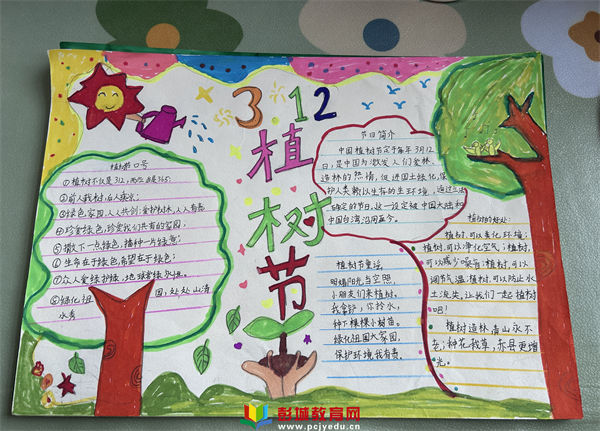 3.12
植树节
植树节口号
①植树不仅是312,而在于365;
②前人栽树,后人乘凉;
③绿色家园,人人共创;爱护树木,人人有责
④珍爱绿色,珍爱我们共有的家园;
⑤撒下一点绿色,播种一片绿荫;
⑥生命在于绿色,希望在于绿色;
⑦众人爱绿护绿,地球春绿
⑧绿化祖国,处处山清
水秀
节日简介
中国植树节定于每年3月12
日,是中国为激发人们爱林、
造林的热情,促进国土绿化,保
护人类赖以生存的生态环境,通过立法
确定的节日,这一设定被中国大陆和
中国台湾沿用至今。
植树节童谣
明媚阳光当空照,
小朋友们来植树。
我拿锹,你拎水,
种下棵棵小树苗。
绿化祖国大家园,
保护环境我有责。
植树的好处:
植树,可以美化环境;
植树,可以净化空气;植树,
可以减少噪音;植树,可以
调节气温;植树,可以防止水
土流失,让我们一起植树
吧!
植树造林,青山永不
老;种花栽草,赤县更增
光。
彭城教育网
www.pcjyedu.cn